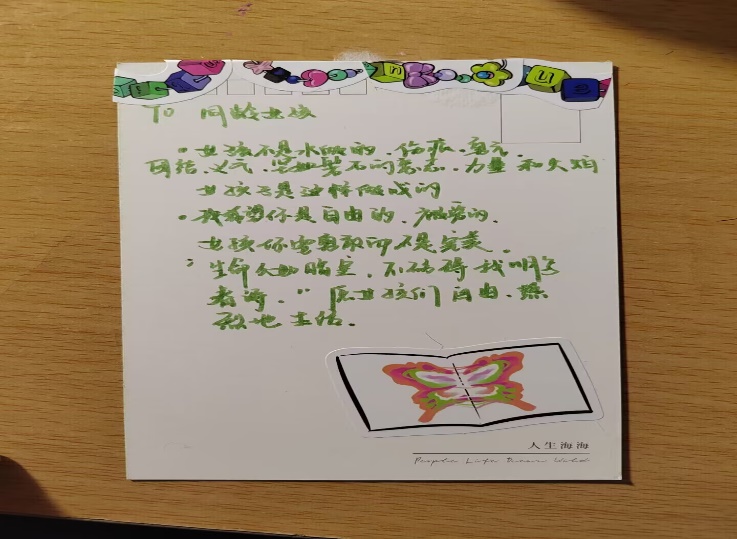 TO 同龄女孩
· 女孩不是水做的,伤痕,勇气,
团结,义气,坚如磐石的意志,力量和火焰
女孩子是这样做成的
· 我希望你是自由的,被爱的,
女孩你需勇敢而不是完美。
"生命从如临室,不妨碍我明
者诗。"愿女孩们自由、热
烈地生活。
人生海海
People Life Ocean Wild